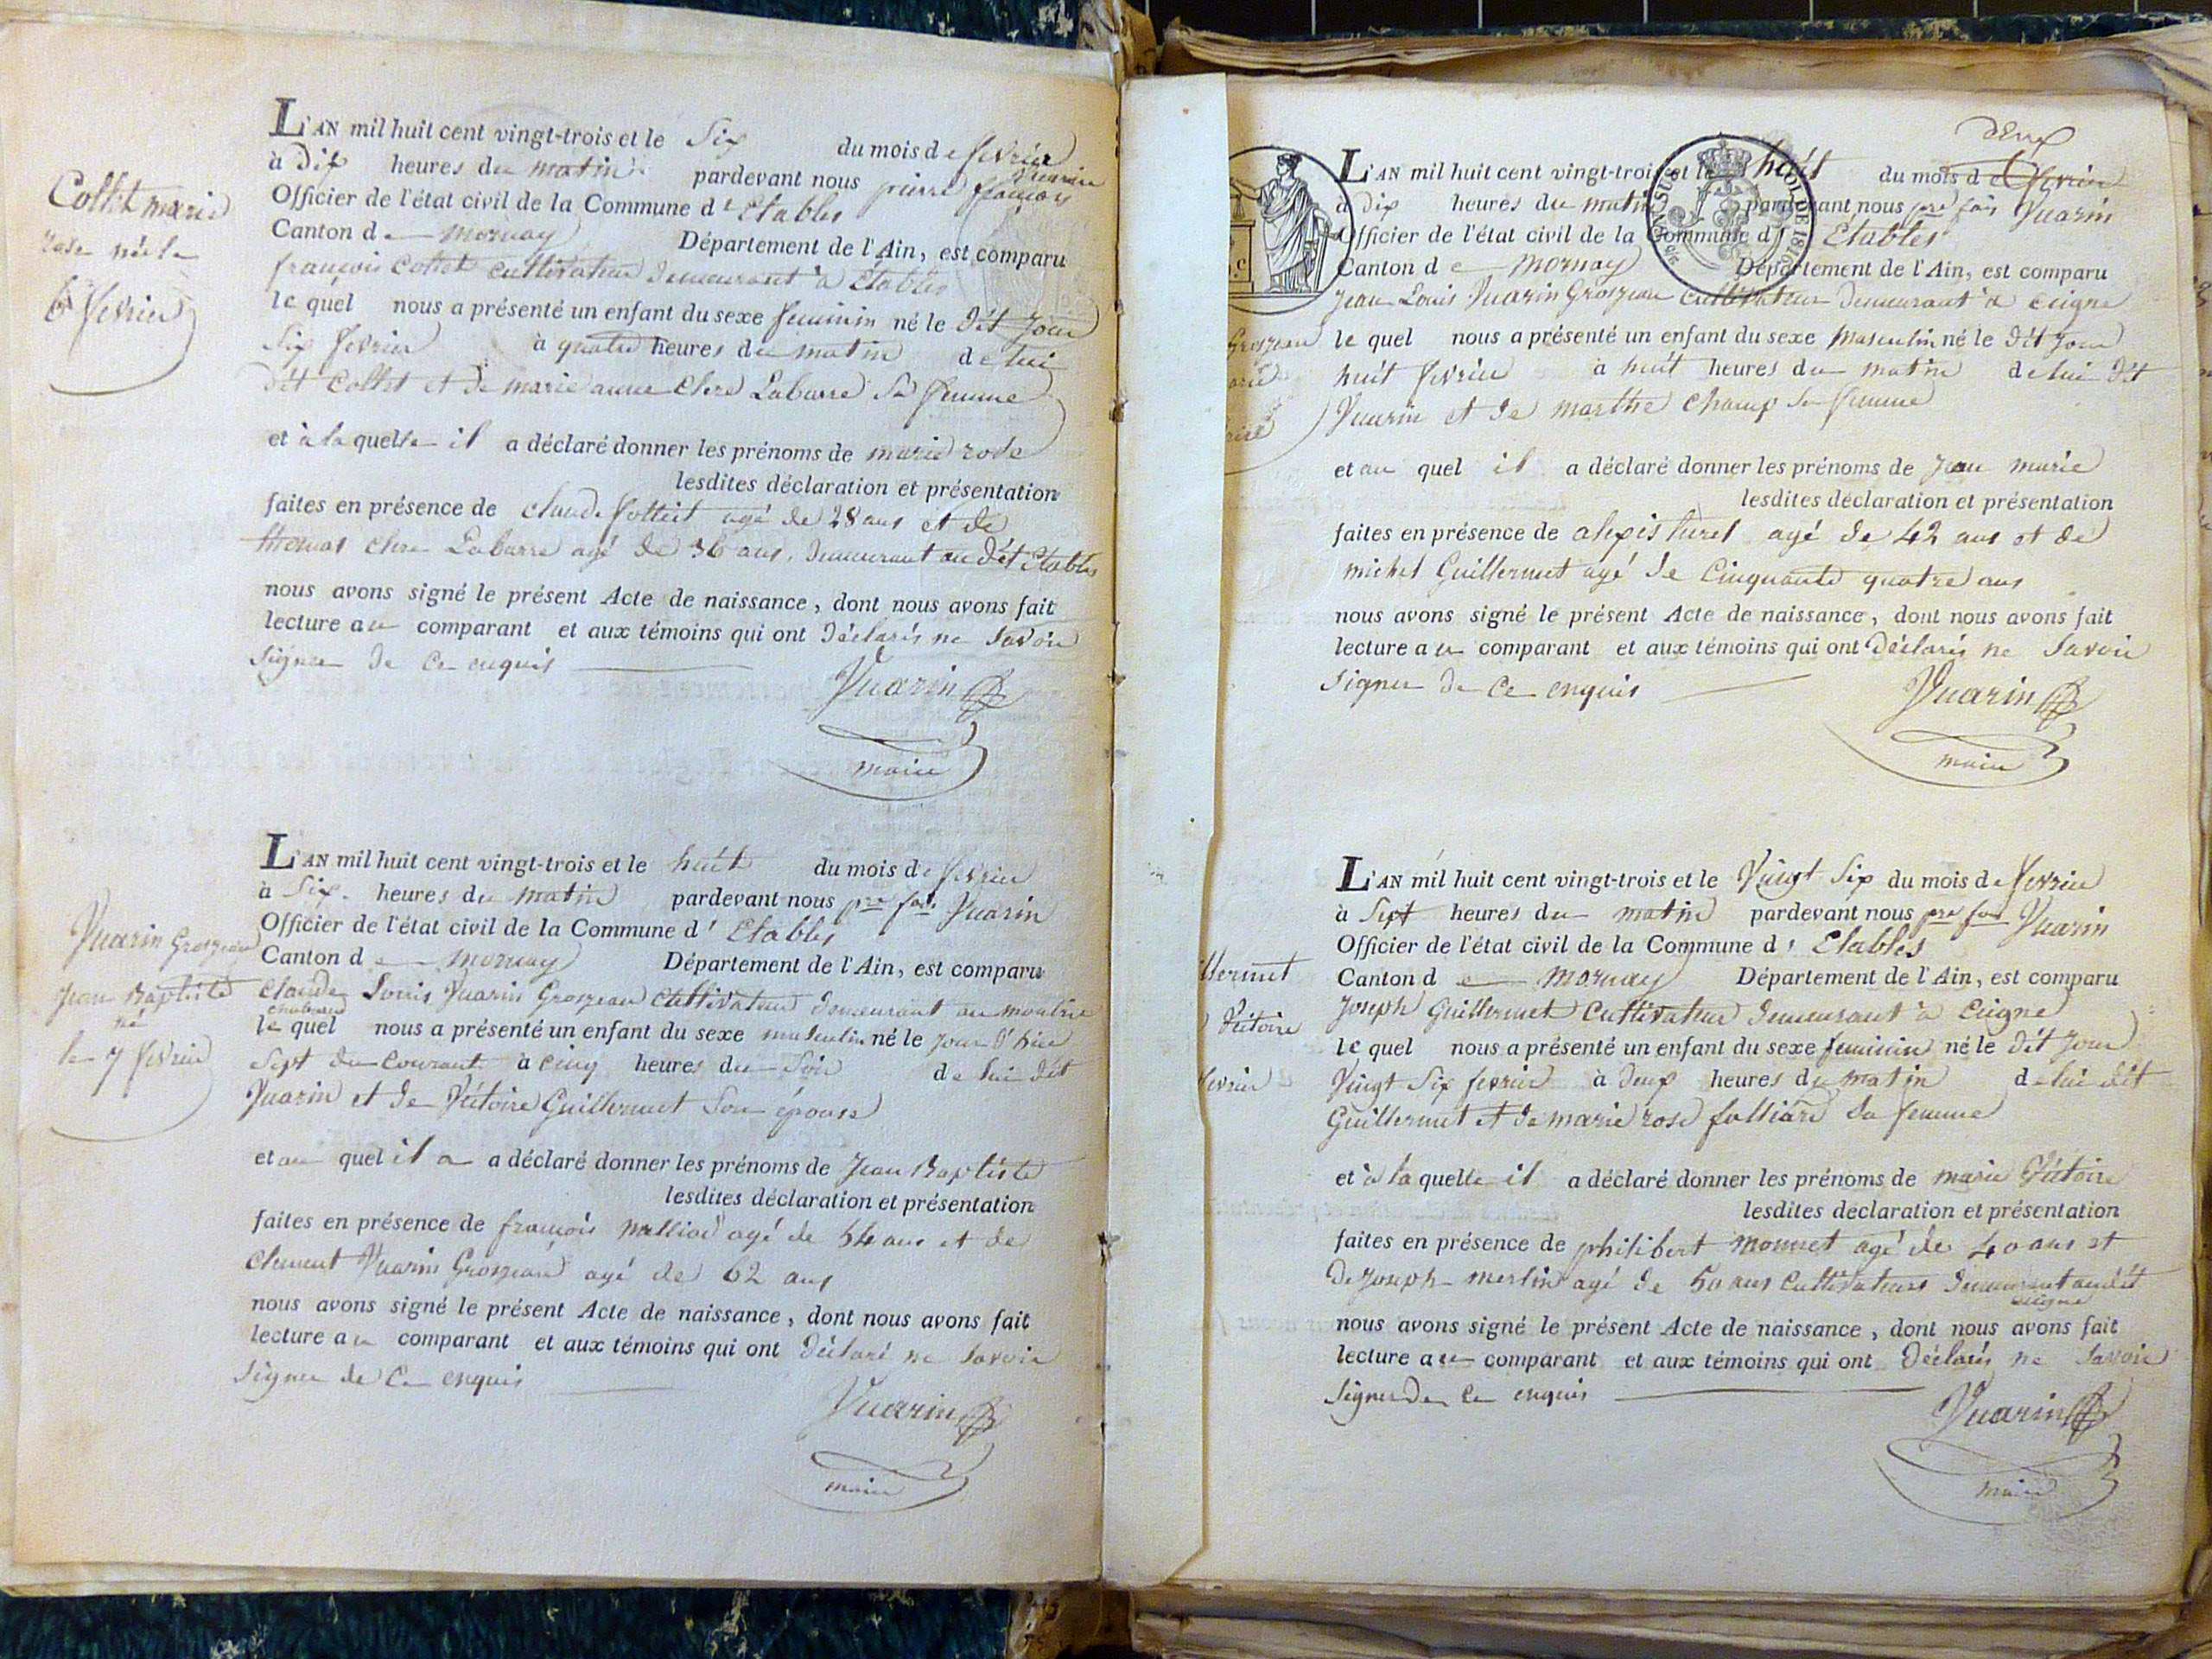 Collet marie
rose née le
6 fevrier
L'AN mil huit cent vingt-trois et le Six du mois de fevrier
à Dix heures du matin pardevant nous pierre françois Vuarin
Officier de l'état civil de la Commune d'Etables
Canton de mornay Département de l'Ain, est comparu
françois Collet cultivateur demeurant à Etables
le quel nous a présenté un enfant du sexe feminin né le dit jour
Six fevrier à quatre heures du matin de lui
dit Collet et de marie anne Labarre Sa femme
et à la quelle il a déclaré donner les prénoms de marie rose
lesdites déclaration et présentation
faites en présence de claude agé de 28 ans et de
thomas Labarre agé de 36 ans, demeurant au dit Etables
nous avons signé le présent Acte de naissance, dont nous avons fait
lecture au comparant et aux témoins qui ont déclarés ne Savoir
Signer de Ce enquis
Vuarin
maire
Vuarin Grosjean
Jean Baptiste
né
le 7 fevrier
L'AN mil huit cent vingt-trois et le huit du mois de fevrier
à Six heures du matin pardevant nous pre fois Vuarin
Officier de l'état civil de la Commune d'Etables
Canton de mornay Département de l'Ain, est comparu
Claude Louis Vuarin Grosjean cultivateur demeurant au moulin
le quel nous a présenté un enfant du sexe masculin né le jour d'hier
Sept du Courant à cinq heures du Soir de lui dit
Vuarin et de Victoire Guillermet Son épouse
et au quel il a a déclaré donner les prénoms de Jean Baptiste
lesdites déclaration et présentation
faites en présence de françois agé de 54 ans et de
Clement Vuarin Grosjean agé de 62 ans
nous avons signé le présent Acte de naissance, dont nous avons fait
lecture au comparant et aux témoins qui ont déclaré ne Savoir
Signer de Ce enquis
Vuarin
maire
deux
L'AN mil huit cent vingt-trois et le huit du mois de fevrier
à Dix heures du matin pardevant nous pre fois Vuarin
Officier de l'état civil de la Commune d'Etables
Canton de Mornay Département de l'Ain, est comparu
Jean Louis Vuarin Grosjean Cultivateur Demeurant à Ceigne
Grosjean
le quel nous a présenté un enfant du sexe Masculin né le dit jour
huit fevrier à huit heures du matin de lui dit
Vuarin et de marthe Champ Sa femme
et au quel il a déclaré donner les prénoms de Jean marie
lesdites déclaration et présentation
faites en présence de alexis turel agé de 42 ans et de
michel Guillermet agé de Cinquante quatre ans
nous avons signé le présent Acte de naissance, dont nous avons fait
lecture au comparant et aux témoins qui ont Déclarés ne Savoir
Signer de Ce enquis
Vuarin
maire
L'AN mil huit cent vingt-trois et le Vingt Six du mois de fevrier
à Sept heures du matin pardevant nous pre fois Vuarin
Officier de l'état civil de la Commune d'Etables
llermet
Canton de Mornay Département de l'Ain, est comparu
Joseph Guillermet Cultivateur demeurant à Ceigne
Victoire
le quel nous a présenté un enfant du sexe feminin né le dit jour
fevrier
Vingt Six fevrier à deux heures du matin de lui dit
Guillermet et de marie rose folliard Sa femme
et à la quelle il a déclaré donner les prénoms de marie Victoire
lesdites déclaration et présentation
faites en présence de philibert Monnet agé de 40 ans et
De Joseph merlin agé de 50 ans Cultivateurs demeurant audit
Ceigne
nous avons signé le présent Acte de naissance, dont nous avons fait
lecture au comparant et aux témoins qui ont Déclarés ne Savoir
Signer De Ce enquis
Vuarin
maire